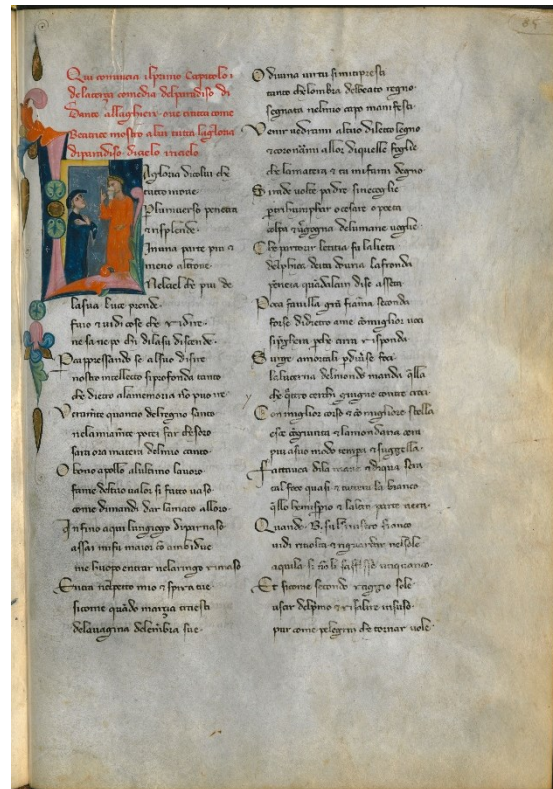 85
Qui comincia ilprimo Capitolo
dela terça comedia del paradiso di
Dante allaghieri. oue tratta come
Beatrice mostro alui tutta la gloria
di paradiso. di cielo in cielo
La gloria di colui che
tutto moue.
Pluniuerso penetra
et risplende.
Inuna parte piu et
meno altroue.
Nelciel che piu de
lasua luce prende.
fuio et uidi cose che ridire.
ne sa ne po chi dilasu discende.
appressando se alsuo disire
nostro intellecto siprofonda tanto
che dietro alamemoria nõ puo ire
quanto delregno santo
nelamia potei far thesoro
sara ora materia delmio canto.
O bono apollo alultimo lauoro
fame deltuo ualor si fatto uaso.
come dimandi dar lamato alloro.
Infino aqui lungiogo diparnaso
assai mifu maior cõ ambidue
me huopo entrar nelaringo rimaso
Entra nelpetto mio et spira tue
sicome quãdo marsia traesti
delauagina delembra sue.
O diuina uirtu simitipresti
tanto che lombra delbeato regno.
segnata nelmio capo manifesti.
Venir uedrami altuo diletto legno
et coronãmi allor diquelle foglie
che lamatera et tu mifarai degno
Si rade uolte padre sinecoglie
triumphar o cesare o poeta
colpa et delumane uoglie.
Che partorir letitia fu lalieta
delphica deita douria lafronda
peneia quãdalcun dise asseta
Poca fauilla grã fiama seconda
forse didietro ame cõmiglior uoci
et risponda.
Surge amortali foci
lalucerna delmondo manda
che cerchi giugne
Con miglior corso et cõmigliore stella
et lamondana cera
piu asuo modo tempra et suggella.
Fattauea dila mane et diqua sera
tal foce quasi et tutto era la bianco
et laltra parte nera.
Quando .B. sul sinistro fianco
uidi riuolta et riguardar nelsole
aquila unquanco.
Et sicome secondo raggio sole
uscir delpmo et risalire insuso
pur come pelegrin che tornar uole.